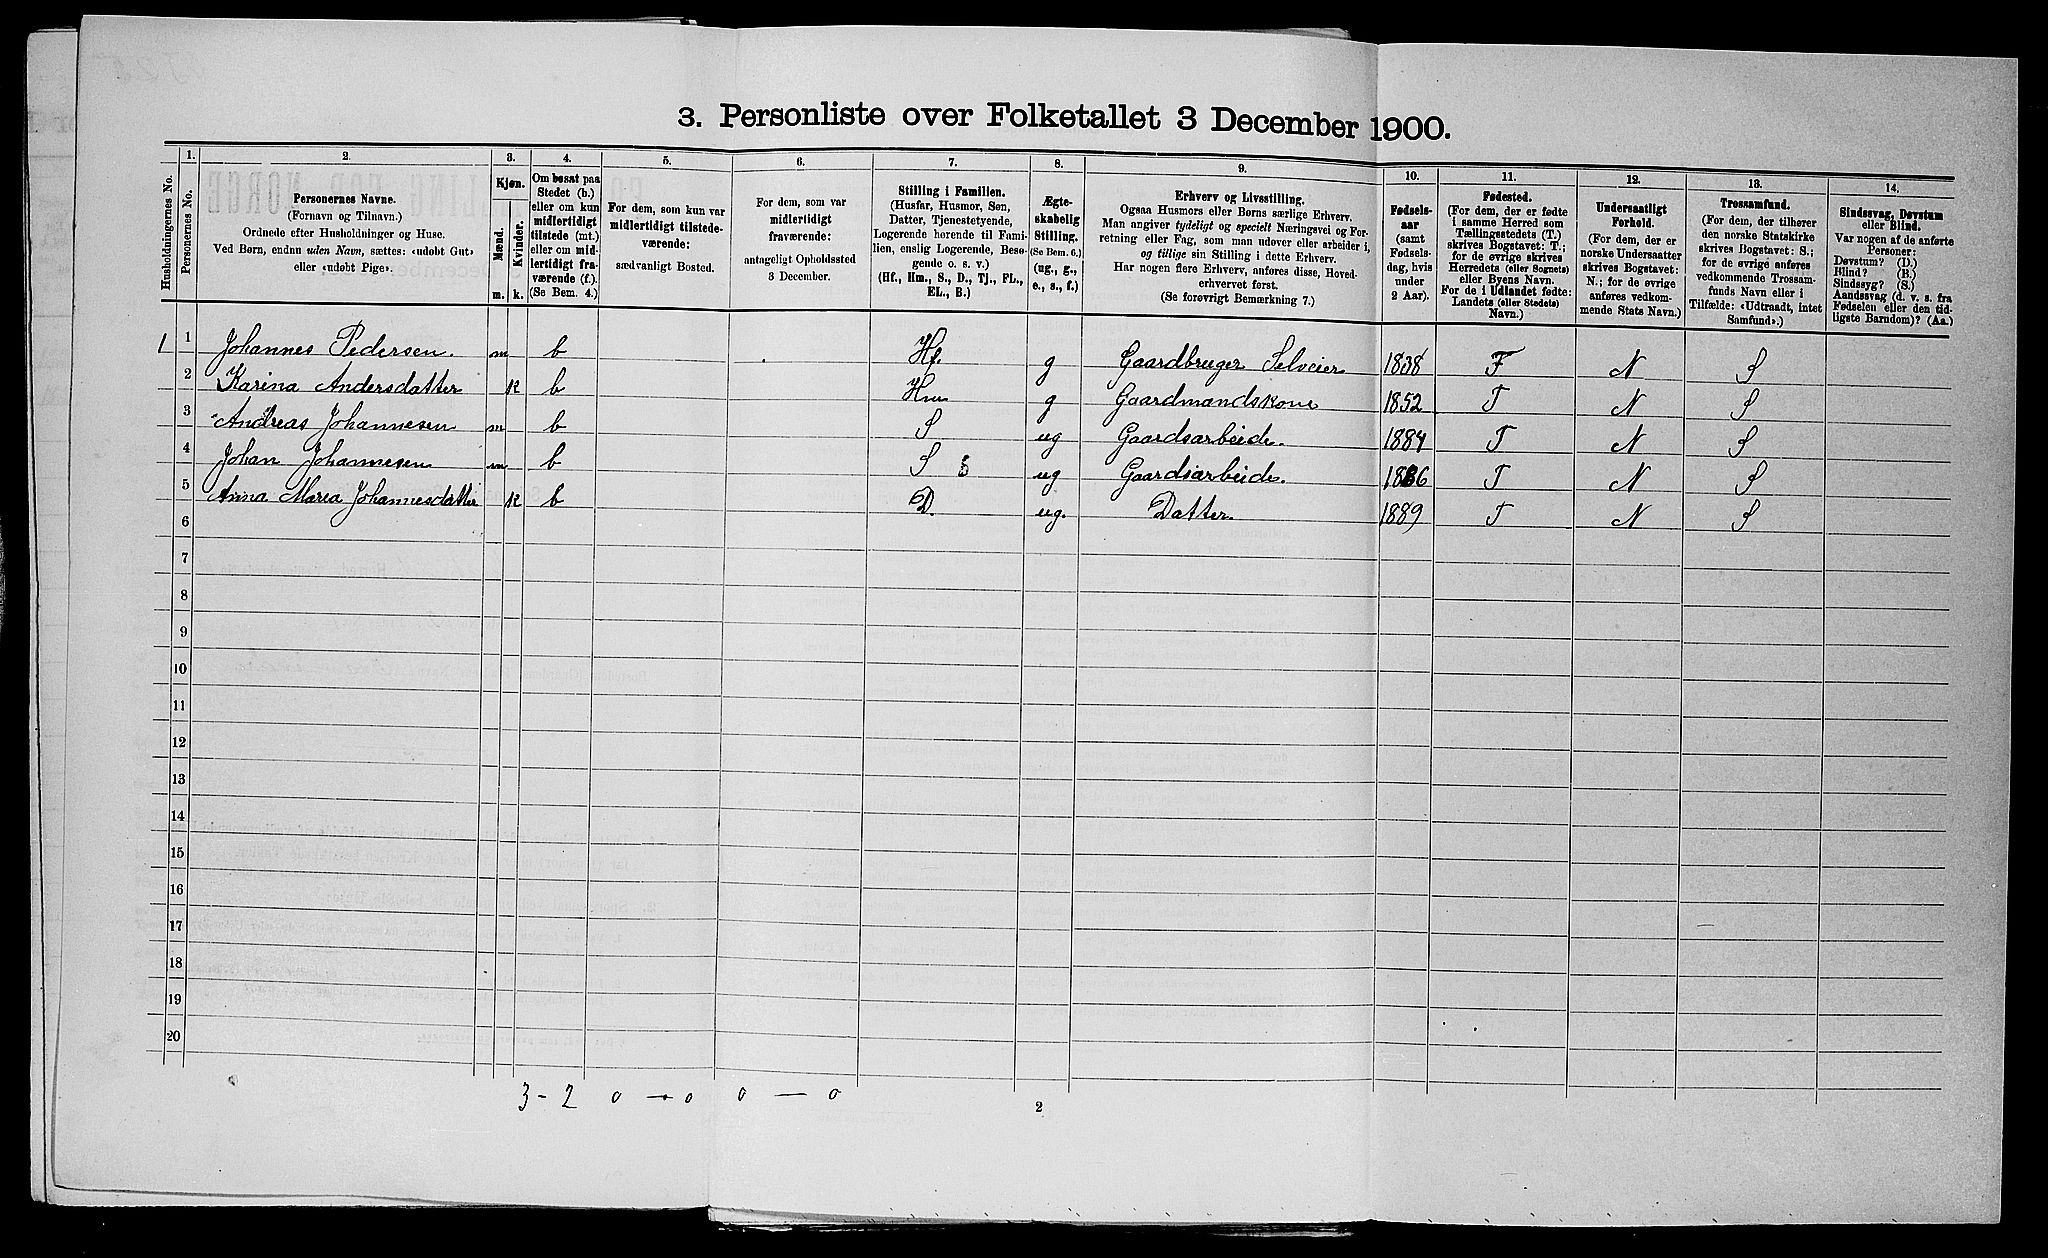 3. Personliste over Folketallet 3 December 1900.
Husholdningernes No.
1. Personernes No.
2. Personernes Navne.
(Fornavn og Tilnavn.)
Ordnede efter Husholdninger og Huse.
Ved Børn, endnu uden Navn, sættes: «udøbt Gut»
eller «udøbt Pige».
3. Kjøn.
Mænd. Kvinder.
m. k.
4. Om bosat paa
Stedet (b.)
eller om kun
midlertidigt
tilstede (mt.)
eller om mid-
lertidigt fra-
værende (f.).
(Se Bem. 4.)
5. For dem, som kun var
midlertidigt tilstede-
værende:
sædvanligt Bosted.
6. For dem, som var
midlertidigt
fraværende:
antageligt Opholdssted
3 December.
7. Stilling i Familien.
(Husfar, Husmor, Søn,
Datter, Tjenestetyende,
Logerende hørende til Fami-
lien, enslig Logerende, Besø-
gende o. s. v.)
(Hf., Hm., S., D., Tj., FL.,
EL., B.)
8. Ægte-
skabelig
Stilling.
(Se Bem. 6.)
(ug., g.,
e., s., f.)
9. Erhverv og Livsstilling.
Ogsaa Husmors eller Børns særlige Erhverv.
Man angiver tydeligt og specielt Næringsvei og For-
retning eller Fag, som man udøver eller arbeider i,
og tillige sin Stilling i dette Erhverv.
Har nogen flere Erhverv, anføres disse, Hoved-
erhvervet først.
(Se forøvrigt Bemærkning 7.)
10. Fødsels-
aar
(samt
Fødsels-
dag, hvis
under
2 Aar).
11. Fødested.
(For dem, der er fødte
i samme Herred som
Tællingsstedets (T.)
skrives Bogstavet: T.;
for de øvrige skrives
Herredets (eller Sognets)
eller Byens Navn.
For de i Udlandet fødte:
Landets (eller Stedets)
Navn.)
12. Undersaatligt
Forhold.
(For dem, der er
norske Undersaatter
skrives Bogstavet:
N.; for de øvrige
anføres vedkom-
mende Stats Navn.)
13. Trossamfund.
(For dem, der tilhører
den norske Statskirke
skrives Bogstavet: S.;
for de øvrige anføres
vedkommende Trossam-
funds Navn eller i
Tilfælde: «Udtraadt, intet
Samfund».)
14. Sindssvag, Døvstum
eller Blind.
Var nogen af de anførte
Personer:
Døvstum? (D.)
Blind? (B.)
Sindssyg? (S.)
Aandssvag (d. v. s. fra
Fødselen eller den tid-
ligste Barndom)? (Aa.)
1 1 Johannes Pedersen. m b Hf. g Gaardbruger Selveier 1838 T N S
2 Karina Andersdatter k b Hm g Gaardmandskone 1852 T N S
3 Andreas Johannesen m b S ug Gaardsarbeide. 1884 T N S
4 Johan Johannesen m b S ug Gaardsarbeide. 1886 T N S
5 Anna Maria Johannesdatter k b D. ug. Datter. 1889 T N S
6
7
8
9
10
11
12
13
14
15
16
17
18
19
20
3 - 2 0 — 0 0 — 0
2